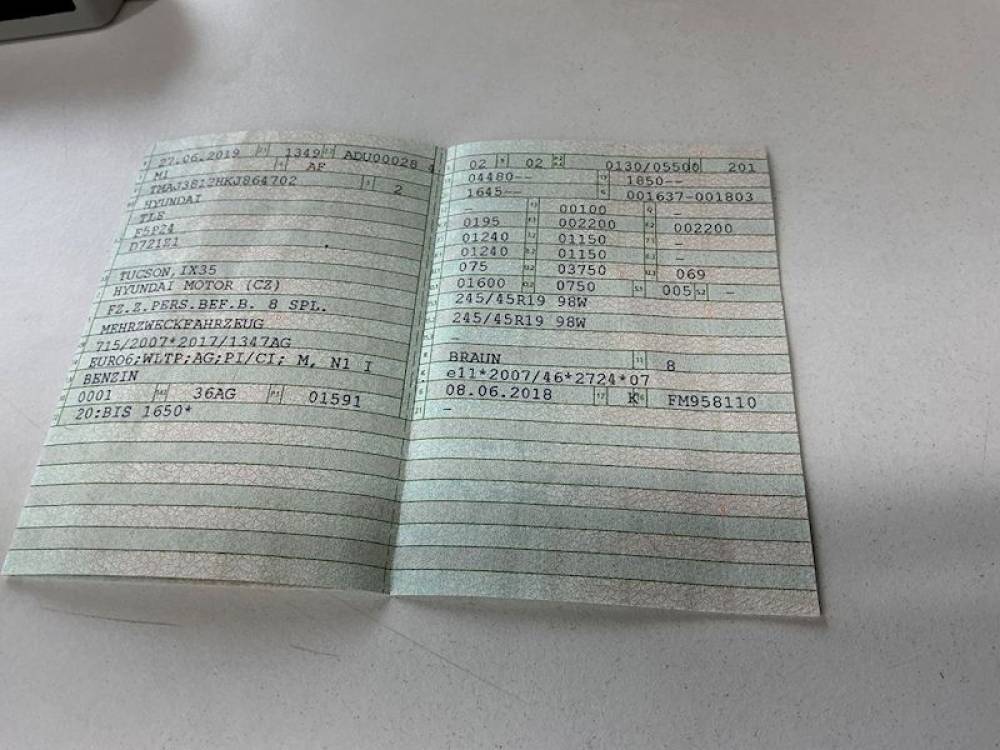 27.06.2019 1349 ADU00028 4
M1 AF
TMAJ3812HKJ864702 2
HYUNDAI
TLE
F5P24
D721Z1
TUCSON,IX35
HYUNDAI MOTOR (CZ)
FZ.Z.PERS.BEF.B. 8 SPL.
MEHRZWECKFAHRZEUG
715/2007*2017/1347AG
EURO6;WLTP;AG;PI/CI; M, N1 I
BENZIN
0001 36AG 01591
20:BIS 1650*
02 02 0130/05500 201
04480-- 1850--
1645-- 001637-001803
- 00100 -
0195 002200 002200
01240 01150 -
01240 01150 -
075 03750 069
01600 0750 005 -
245/45R19 98W
245/45R19 98W
-
BRAUN 8
e11*2007/46*2724*07
08.06.2018 K FM958110
-